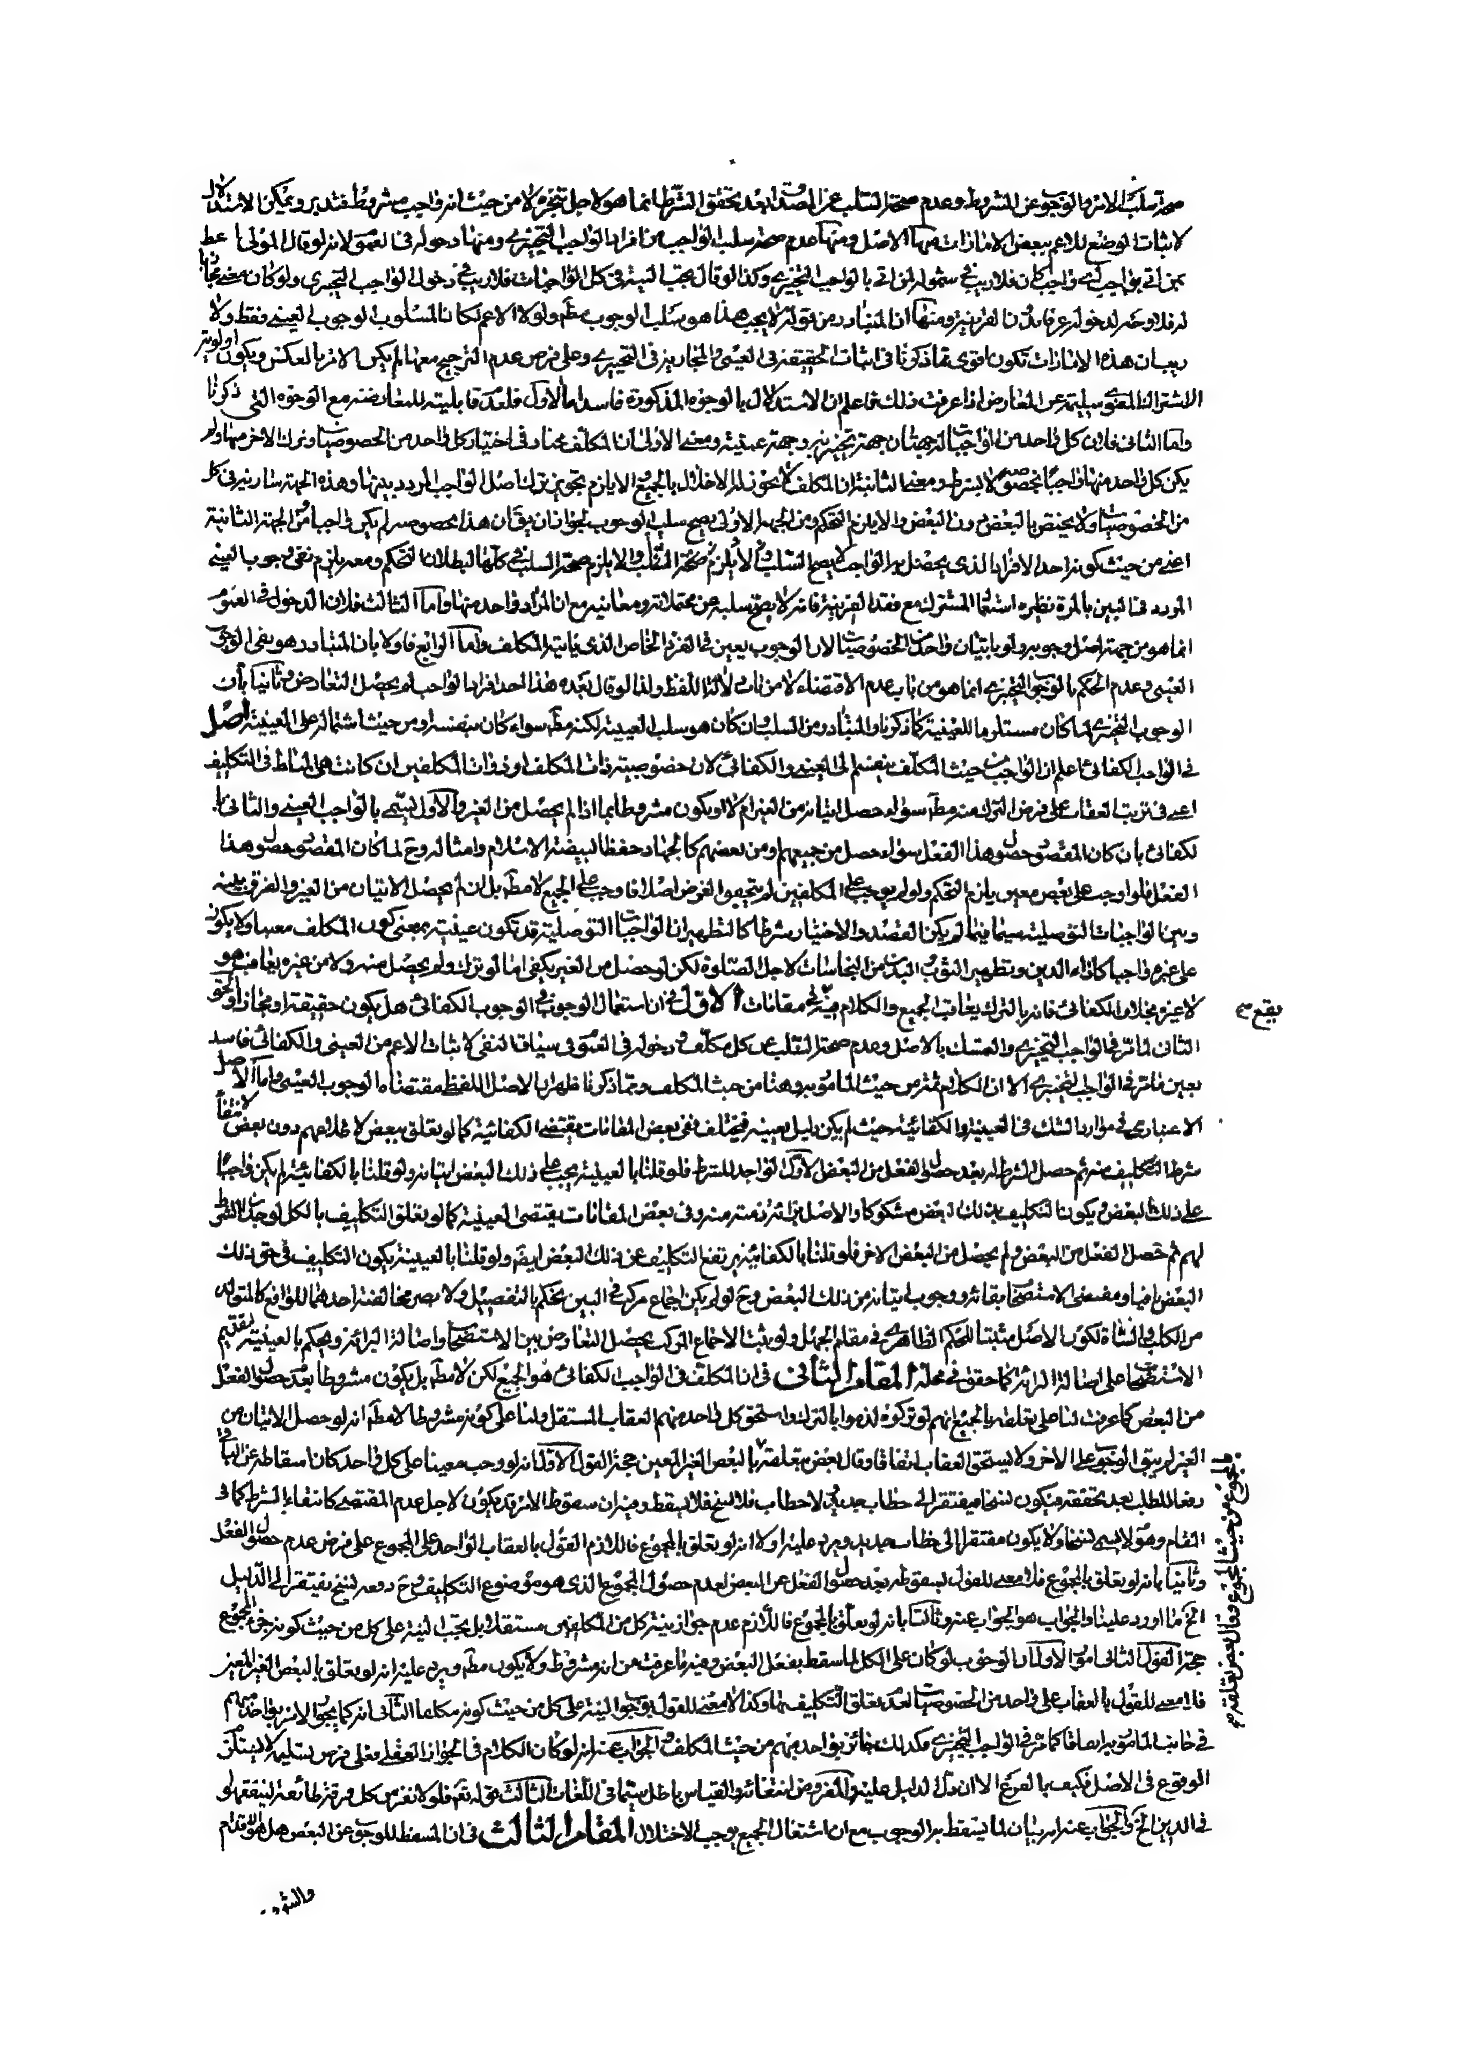 صحة سلب الامر والوجوب عن المشروط وعدم صحة السلب عن المصداق بعد تحقق الشرط انما هو لاجل تنجزه لا من حيث انه واجب مشروط فتدبر ويمكن الاستدلال
لاثبات الوضع للاعم ببعض الامارات منها الاصل ومنها عدم صحة سلب الواجب من افراد الواجب التخييرى ومنها دخوله فى العموم لانه لو قال المولى اعط
من اتى بواجب اى واجب كان فلا ريب فى شموله لمن اتى بالواجب التخييرى وكذا لو قال يجب النية فى كل الواجبات فلا ريب فى دخول الواجب التخييرى ولو كان معنى مجازيا
له فلا وجه لدخوله عرفا بدون القرينة ومنها ان المتبادر من قوله لا يجب هذا هو سلب الوجوب مط ولولا الاعم لكان المسلوب الوجوب العينى فقط ولا
ريب ان هذه الامارات تكون اقوى مما ذكرنا فى اثبات الحقيقة فى العينى والمجازية فى التخييرى وعلى فرض عدم الترجيح معها لم يكن الامر بالعكس ويكون اولوية
الاشتراك المعنوى سليمة عن المعارض اذا عرفت ذلك فاعلم ان الاستدلال بالوجوه المذكورة فاسد اما الاول فلعدم قابليته للمعارضة مع الوجوه التى ذكرنا
واما الثانى فلان كل واحد من الواجبات له جهتان جهة تخييرية وجهة عينية ومعنى الاولى ان المكلف مختار فى اختيار كل واحد من الخصوصيات وترك الاخر منها ولم
يكن كل واحد منها واجبا بخصوصه لا بشرط ومعنى الثانية ان المكلف لا يجوز له الاخلال بالجميع والا يلزم تجويز ترك اصل الواجب المردد بينها وهذه الجهة سارية فى كل
من الخصوصيات ولا يختص بالبعض دون البعض والا يلزم التحكم ومن الجهة الاولى يصح سلب الوجوب لجواز ان يق ان هذا بخصوصه لم يكن واجبا ومن الجهة الثانية
اعنى من حيث كونه احد الافراد الذى يحصل به الواجب لا يصح السلب ولا يلزم صحة السلب والا يلزم صحة السلب فى كلها لبطلان التحكم ومعه يلزم نفى وجوب العينى
المردد فى البين بالمرة نظيره استعمال المشترك مع فقد القرينة فانه لا يصح سلبه عن محتملاته ومعانيه مع ان المراد واحد منها واما الثالث فلان الدخول فى العموم
انما هو من جهة اصل وجوبه ولو باتيان واحد من الخصوصيات لان الوجوب يعين فى الفرد الخاص الذى ياتيه المكلف واما الرابع فاولا بان المتبادر هو نفى الوجوب
العينى وعدم الحكم بالوجوب التخييرى انما هو من باب عدم الاقتضاء لا من باب دلالة اللفظ ولذا لو قال بعده هذا احد افراد الواجب لم يحصل التعارض وثانيا بان
الوجوب التخييرى لما كان مستلزما للعينية كما ذكرنا والمتبادر من السلب وان كان هو سلب العينية لكنه مط سواء كان بنفسه او من حيث اشتماله على العينية اصل
فى الواجب الكفائى اعلم ان الواجب من حيث المكلف ينقسم الى العينى والكفائى لان خصوصية ذات المكلف او ذوات المكلفين ان كانت هى المناط فى التكليف
اعنى فى ترتب العقاب على فرض الترك منه مط سواء حصل اتيانه من الغير ام لا او يكون مشروطا بما اذا لم يحصل من الغير والاول يسمى بالواجب العينى والثانى با
لكفائى بان كان المقصود حصول هذا الفعل سواء حصل من جميعهم او من بعضهم كالجهاد حفظا لبيضة الاسلام وامثاله وح لما كان المقصود حصول هذا
الفعل فلو اوجب على بعض معين يلزم التحكم ولو لم يوجب على المكلفين لم يتحقق الغرض اصلا فاوجب على الجميع لا مط بل ان لم يحصل الاتيان من الغير والفرق بينه
وبين الواجبات التوصلية سيما فيما لم يكن القصد والاختيار شرطا كالتطهير ان الواجبات التوصلية قد تكون عينية بمعنى كون المكلف معينا ولا يكون
على غيره واجبا كاداء الدين وتطهير الثوب والبدن من النجاسات لاجل الصلوة لكن لو حصل من الغير يكفى اما لو ترك ولم يحصل منه ولا من غيره يعاقب هو
لا غيره بخلاف الكفائى فانه بالترك يعاقب الجميع والكلام فيه يقع فى مقامات الاول فى ان استعمال الوجوب فى الوجوب الكفائى هل يكون حقيقة او مجازا والحق
الثانى لما مر فى الواجب التخييرى والتمسك بالاصل وعدم صحة السلب عن كل مكلف ودخوله فى العموم فى سياق النفى لاثبات الاعم من العينى والكفائى فاسد
بعين ما مر فى الواجب التخييرى الا ان الكلام ثمة من حيث المامور به وهنا من حيث المكلف ومما ذكرنا ظهر ان الاصل اللفظى مقتضاه الوجوب العينى واما الاصل
الاعتبارى فى موارد الشك فى العينية والكفائية حيث لم يكن دليل يعينه فيختلف ففى بعض المقامات يقتضى الكفائية كما لو تعلق ببعض لاطلاعهم دون بعض لانتفاء
شرط التكليف منه ثم حصل الشرط له بعد حصول الفعل من البعض الاول الواجد للشرط فلو قلنا بالعينية يجب على ذلك البعض اتيانه ولو قلنا بالكفائية لم يكن واجبا
على ذلك البعض ويكون التكليف بذلك البعض مشكوكا والاصل برائة ذمته منه وفى بعض المقامات يقتضى العينية كما لو تعلق التكليف بالكل لوجدان الشرط
لهم ثم حصل الفعل من البعض ولم يحصل من البعض الاخر فلو قلنا بالكفائية يرتفع التكليف عن ذلك البعض ايض ولو قلنا بالعينية يكون التكليف فى حق ذلك
البعض باقيا ومقتضى الاستصحاب بقائه ووجوب اتيانه من ذلك البعض وح لو لم يكن اجماع مركب فى البين يحكم بالتفصيل ولا ضير مخالفة احدهما للواقع كالمتولد
من الكلب والشاة لكون الاصل مثبتا للحكم الظاهرى فى مقام الجهل ولو ثبت الاجماع المركب يحصل التعارض بين الاستصحاب واصالة البرائة ويحكم بالعينية بتقديم
الاستصحاب على اصالة البرائة كما حقق فى محله المقام الثانى فى ان المكلف فى الواجب الكفائى هو الجميع لكن لا مط بل يكون مشروطا بعدم حصول الفعل
من البعض كما عرفت لنا على تعلقه بالجميع انهم لو تركوه لذموا بالترك واستحق كل واحد منهم العقاب المستقل ولنا على كونه مشروطا لا مط انه لو حصل الاتيان من
الغير لم يبق الوجوب على الاخر ولا يستحق العقاب اتفاقا وقال بعض بتعلقه بالبعض الغير المعين حجة القول الاول انه لو وجب معينا على كل واحد كان اسقاطه عن الباقى
رفعا للطلب بعد تحققه فيكون نسخا فيفتقر الى خطاب جديد ولا خطاب فلا نسخ فلا يسقط وفيه ان سقوط الامر قد يكون لاجل عدم المقتضى كانتفاء الشرط كما فى
المقام وهو لا يسمى نسخا ولا يكون مفتقرا الى خطاب جديد ويرد عليه اولا انه لو تعلق بالمجموع فاللازم القول بالعقاب الواحد على المجموع على فرض عدم حصول الفعل
وثانيا بانه لو تعلق بالمجموع فلا معنى للقول بسقوطه بعد حصول الفعل عن البعض لعدم حصول المجموع الذى هو موضوع التكليف وح رفعه نسخ يفتقر الى الدليل
الخ ما اورد علينا والجواب هو الجواب عنه وثالثا بانه لو تعلق بالمجموع فاللازم عدم جواز نية كل من المكلفين مستقلا بل يجب النية على كل من حيث كونه جزء المجموع
حجة القول الثانى امور الاول ان الوجوب لو كان على الكل لما سقط بفعل البعض وفيه ما عرفت من انه مشروط ولا يكون مط ويرد عليه انه لو تعلق بالبعض الغير المعين
فلا معنى للقول بالعقاب على واحد من الخصوصيات لعدم تعلق التكليف بها وكذا لا معنى للقول بوجوب النية على كل من حيث كونه مكلفا الثانى انه كما يجوز الامر بواحد مبهم
فى جانب المامور به اتفاقا كما مر فى الواجب التخييرى فكذلك جائز بواحد مبهم من حيث المكلف والجواب عنه انه لو كان الكلام فى الجواز العقلى فعلى فرض تسليمه لا يستلزم
الوقوع فى الاصل فكيف بالفرع الا ان دل الدليل عليه والمفروض انتفائه والقياس باطل سيما فى اللغات الثالث قوله تعالى فلولا نفر من كل فرقة طائفة ليتفقهوا
فى الدين الخ والجواب عنه انه بيان لما يسقط به الوجوب مع ان اشتغال الجميع يوجب الاختلال المقام الثالث فى ان المسقط للوجوب عن البعض هل هو قيام
يقع صح
بالمجموع من حيث المجموع وقال بعض تعلقه صح
والشود